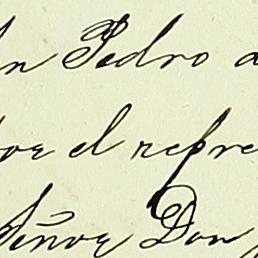 n Pedro
el refre
Señor Don